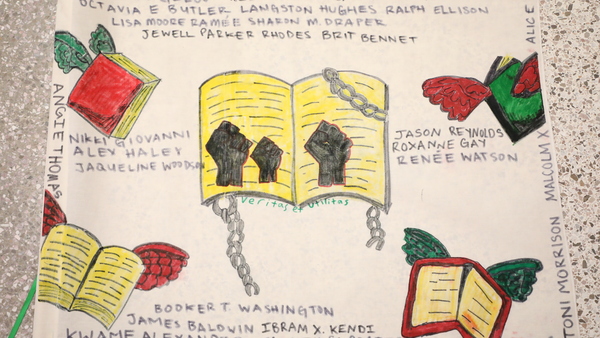 OCTAVIA E BUTLER LANGSTON HUGHES RALPH ELLISON
LISA MOORE RAMÉE SHARON M. DRAPER
JEWELL PARKER RHODES BRIT BENNET
ALICE
ANGIE THOMAS
NIKKI GIOVANNI
ALEX HALEY
JAQUELINE WOODSON
JASON REYNOLDS
ROXANNE GAY
RENÉE WATSON
MALCOLM X
TONI MORRISON
Veritas et Utilitas
BOOKER T. WASHINGTON
JAMES BALDWIN IBRAM X. KENDI
KWAME